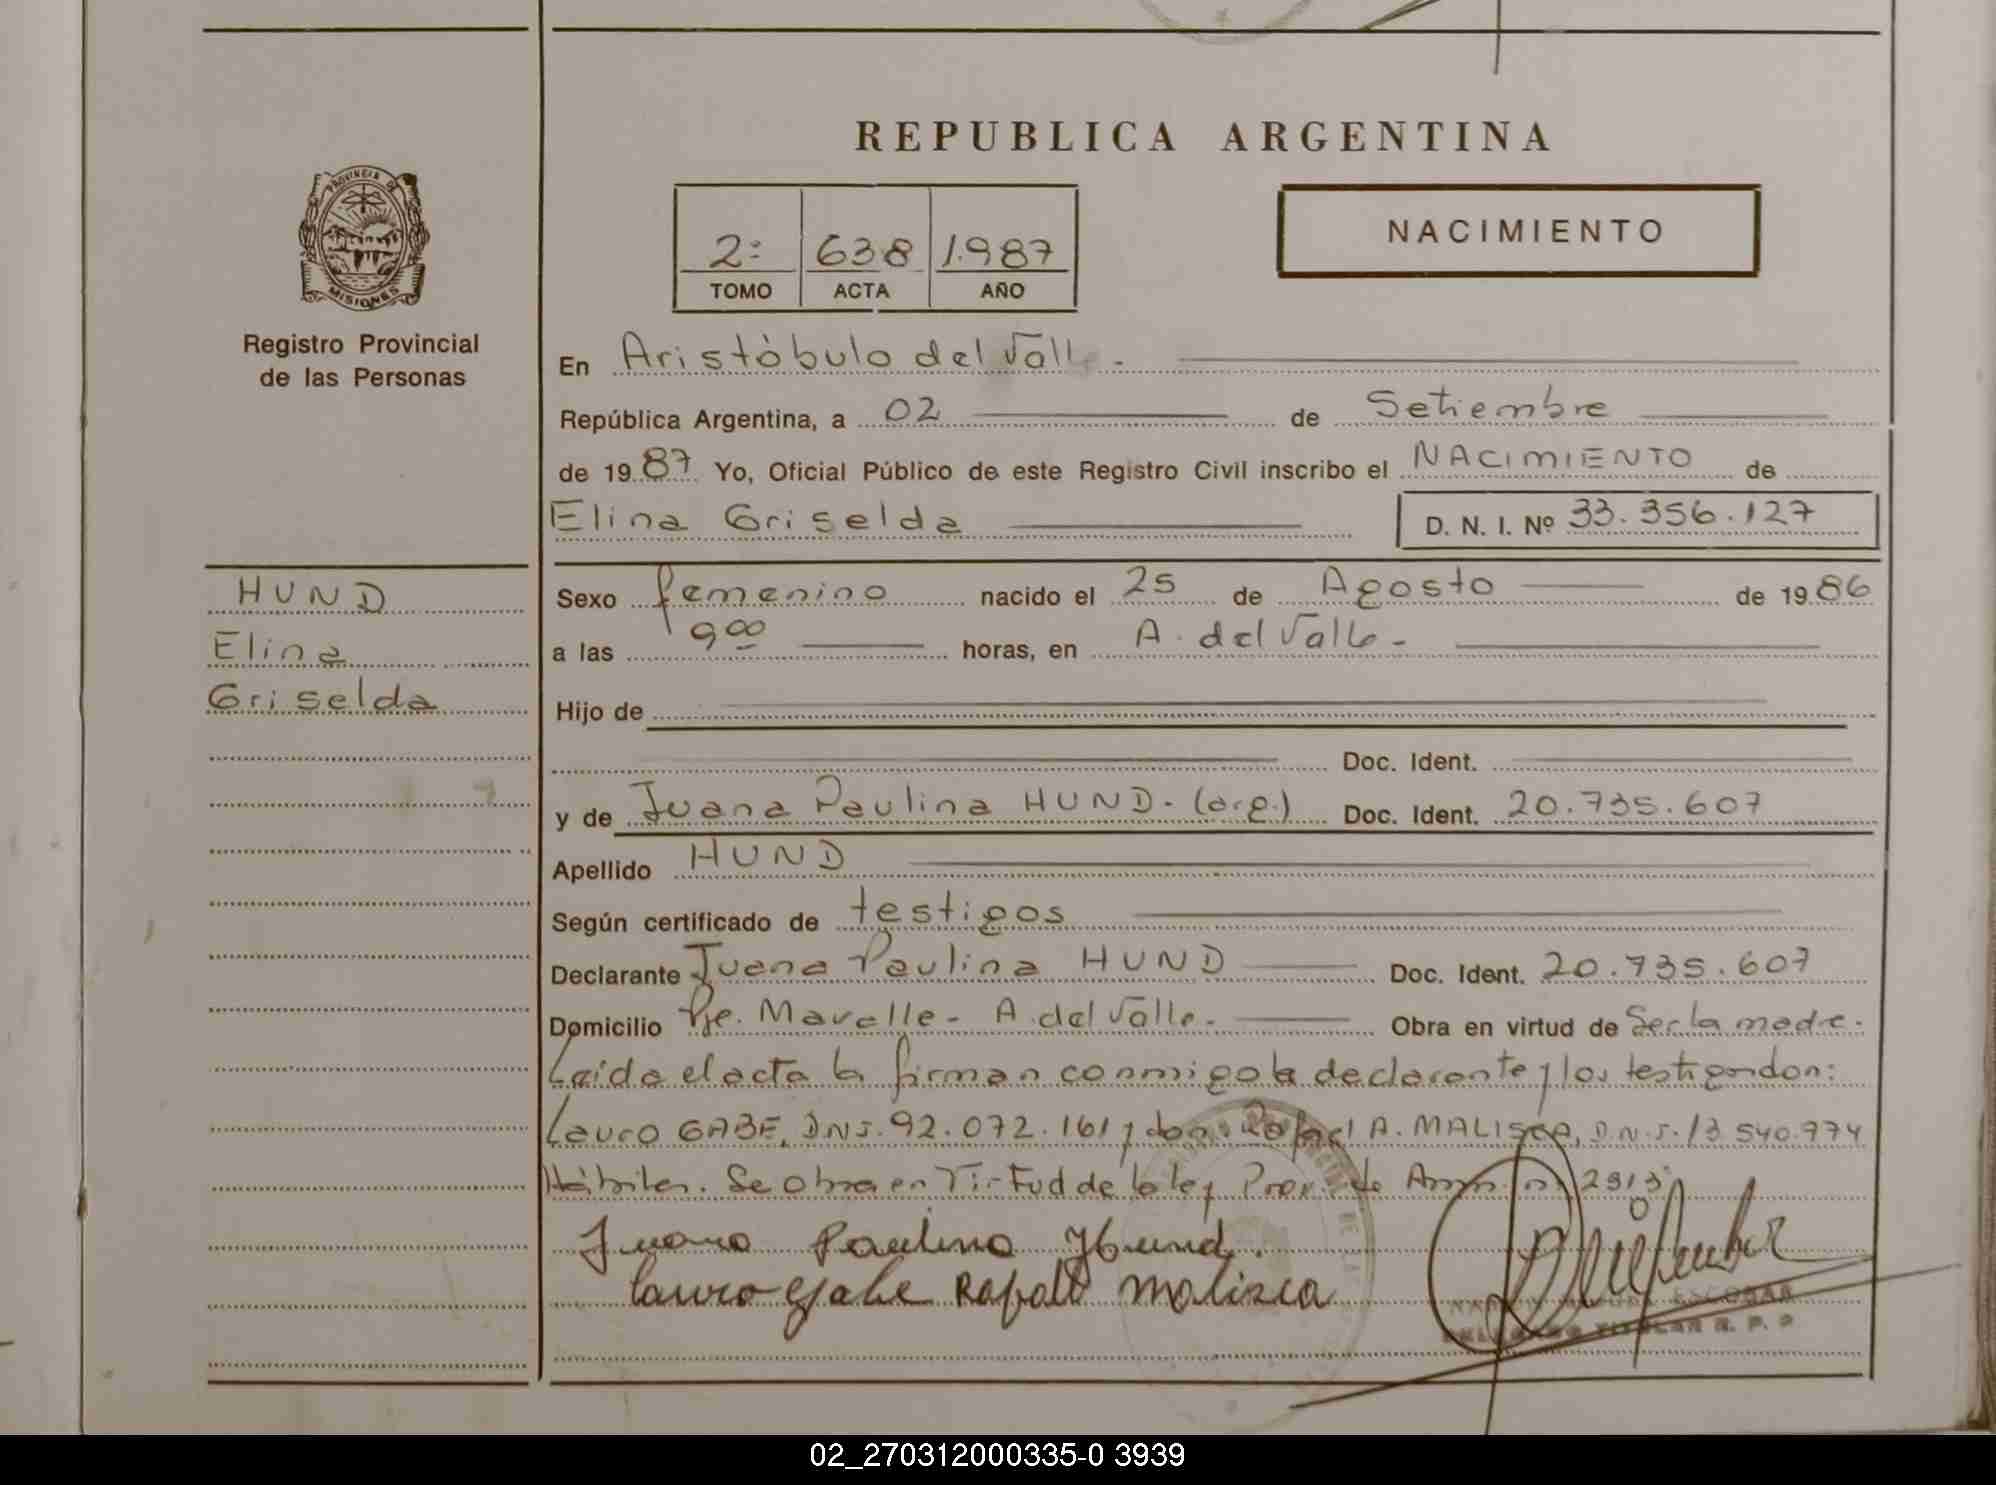 REPUBLICA ARGENTINA
PROVINCIA DE
MISIONES
Registro Provincial
de las Personas
2º 638 1.987
TOMO ACTA AÑO
NACIMIENTO
En Aristóbulo del Valle.-
República Argentina, a 02 de Setiembre
de 1987 Yo, Oficial Público de este Registro Civil inscribo el NACIMIENTO de
Elina Griselda D. N. I. Nº 33.356.127
HUND
Elina
Griselda
Sexo femenino nacido el 25 de Agosto de 1986
a las 9 00 horas, en A. del Valle-
Hijo de
Doc. Ident.
y de Juana Paulina HUND.- (arg.) Doc. Ident. 20.735.607
Apellido HUND
Según certificado de testigos
Declarante Juana Paulina HUND Doc. Ident. 20.735.607
Domicilio Pje. Mavalle- A. del Valle.- Obra en virtud de Ser la madre.-
Leída el acta la firman conmigo la declarante y los testigos don:
Lauro GABE, DNI. 92.072.161 y don Rafael A. MALISCA, D.N.I. 13.540.974
Hábiles. Se obra en Virtud de la ley Prov. de Amn. n 2513
Juana Paulina Hund.
Lauro Gabe Rafael Malizca
ESCOBAR
TITULAR R. P. P
02_270312000335-0 3939